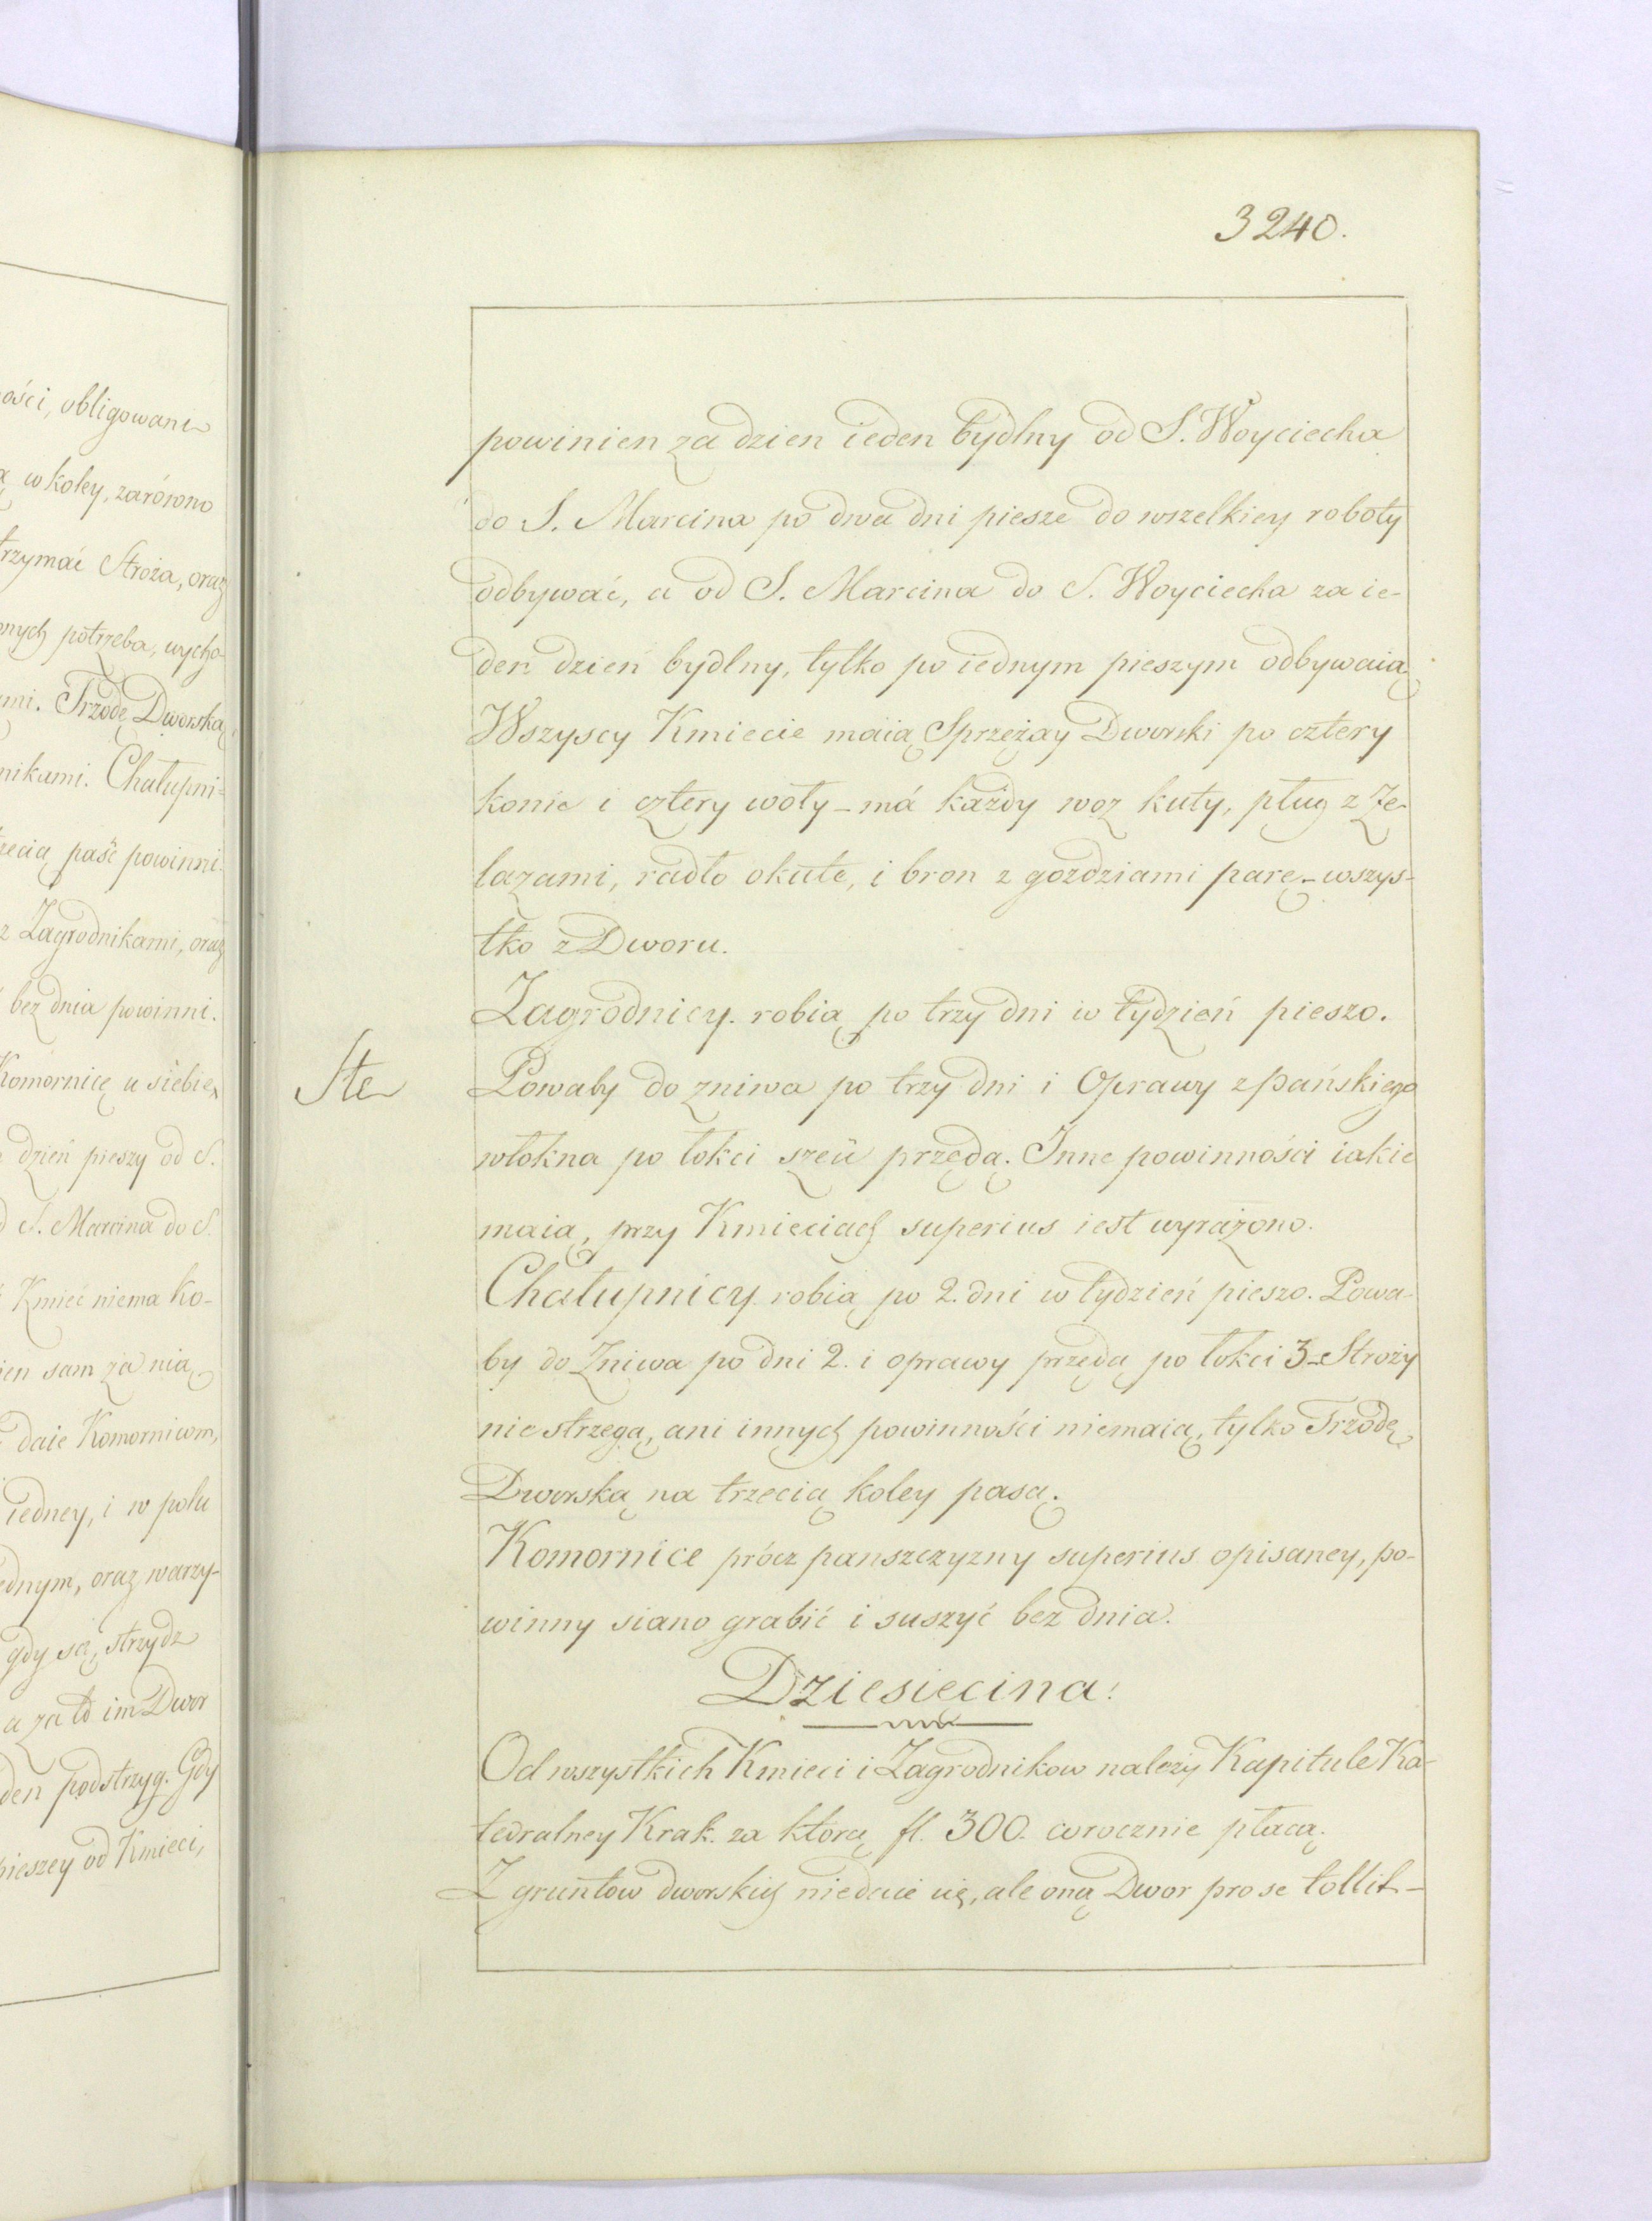 ości, obligowani
w koley, zarówno
trzymać Stroża, oraz
potrzeba, wycho-
mi. Trzodę Dworską
nikami. Chałupni-
trzecią paść powinni
z Zagrodnikami, oraz
bez dnia powinni.
Komornicę u siebie
dzień pieszy od S.
S. Marcina do S.
Kmieć niema ko-
sam za nią
daie Komornicom,
iedney, i w polu
ednym, oraz warzy-
gdy są, strzydz
a za to im Dwor
den podstrzyg. Gdy
pieszey od Kmieci,
3240.
powinien za dzien ieden bydlny od S. Woyciecha
do S. Marcina po dwa dni piesze do wszelkiey roboty
odbywać, a od S. Marcina do S. Woyciecha za ie-
den dzień bydlny, tylko po iednym pieszym odbywaią
Wszyscy Kmiecie maią Sprzężay Dworski po cztery
konie i cztery woły – má każdy woz kuty, pług z Że-
lazami, radło okute, i bron z gozdziami parę – wszys-
tko z Dworu.
Zagrodnicy. robią po trzy dni w tydzień pieszo.
Ste
Powaby do zniwa po trzy dni i Oprawy z pańskiego
włokna po łokci sześć przędą. Inne powinności iakie
maią, przy Kmieciach superius iest wyrażono.
Chałupnicy. robią po 2. dni w tydzień pieszo. Powa-
by do Zniwa po dni 2. i oprawy przędą po łokci 3 – Stroży
nie strzegą, ani innych powinności niemaią, tylko Trzodę
Dworską na trzecią koley pasą.
Komornice prócz panszczyzny superius opisaney, po-
winny siano grabić i suszyć bez dnia.
Dziesięcina:
Od wszystkich Kmieci i Zagrodnikow należy Kapitule Ka-
tedralney Krak. za ktorą fl. 300. corocznie płacą.
Z gruntow dworskich niedaie się, ale oną Dwor pro se tollit –